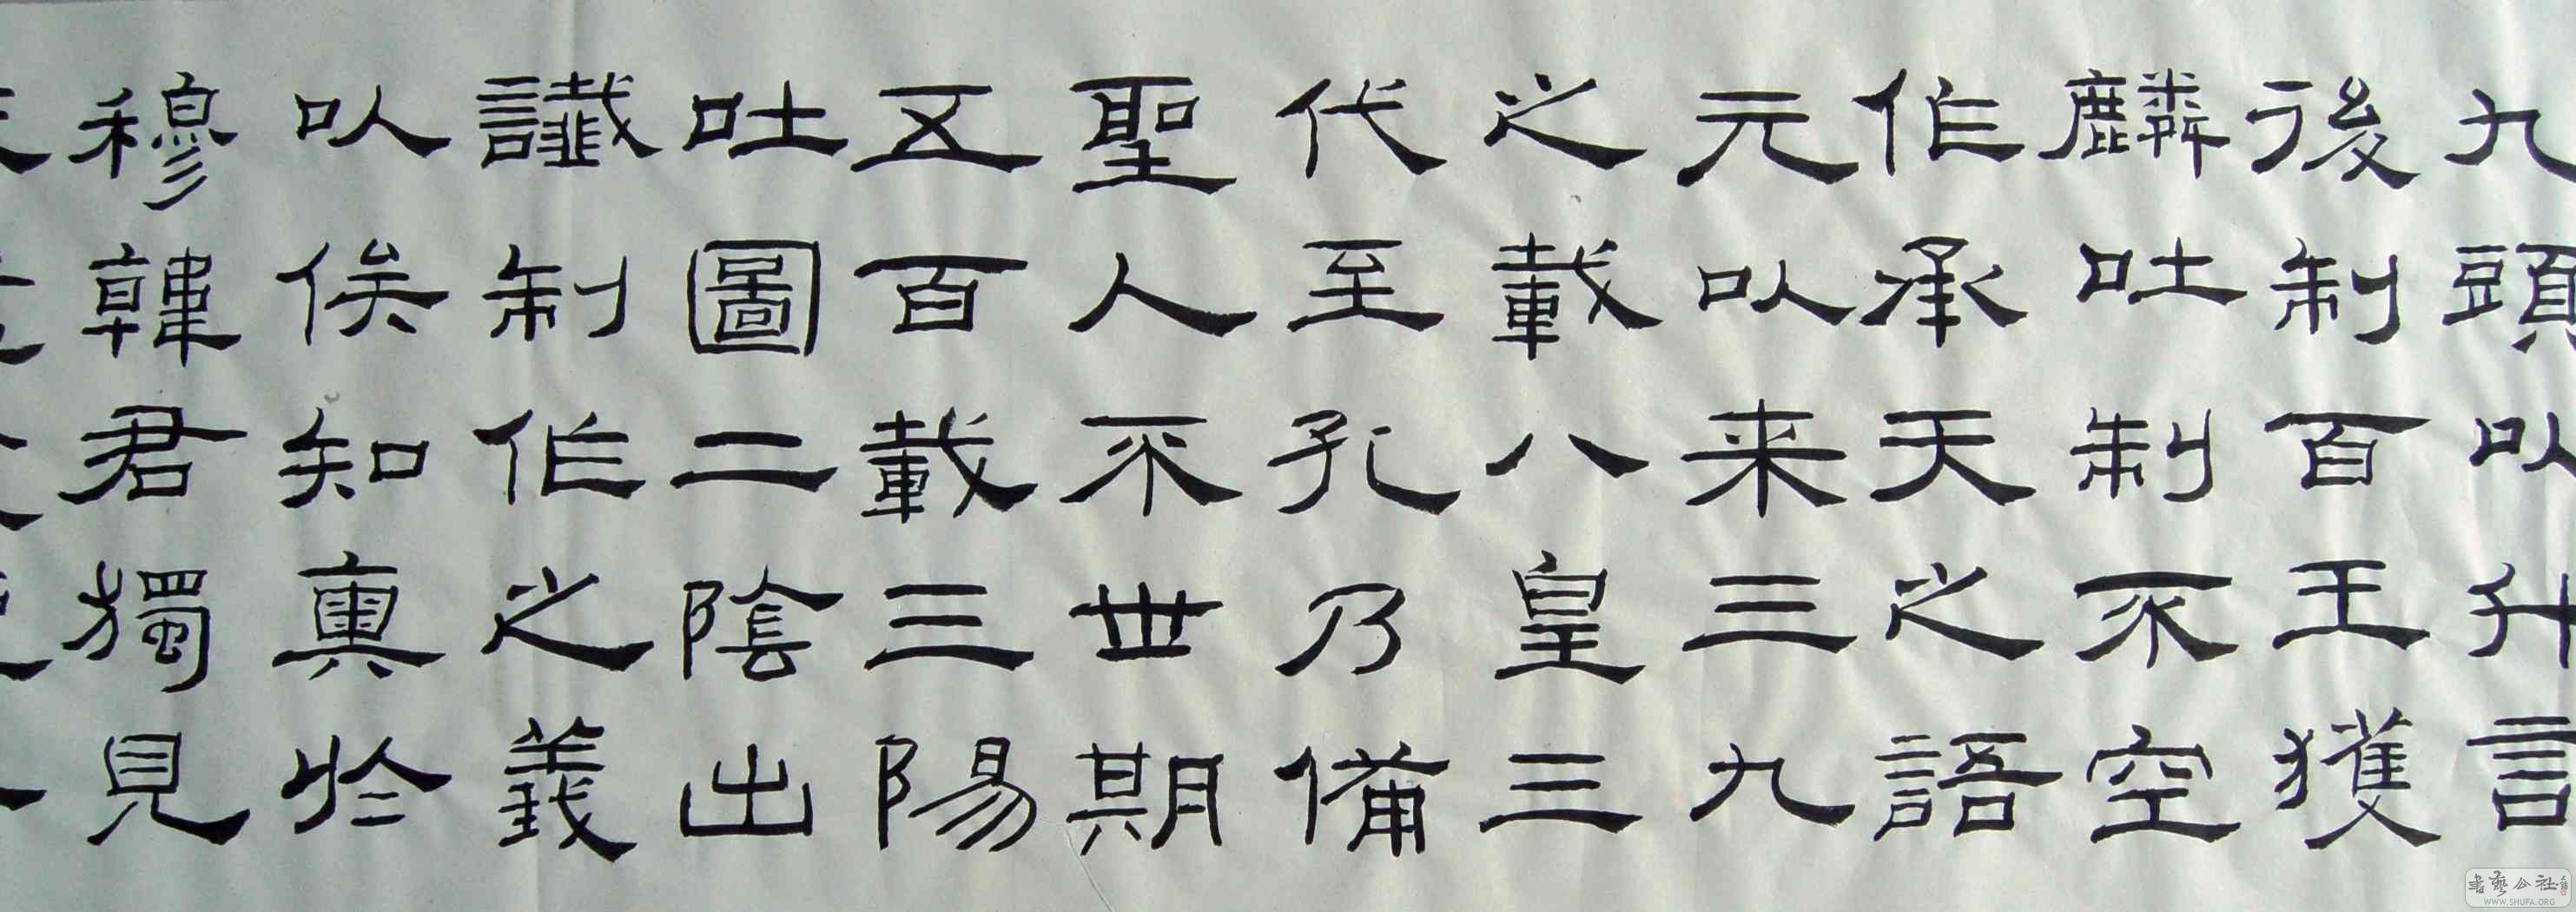 九頭以升言
後制百王獲
麟吐制不空
作承天之語
元以来三九
之載八皇三
代至孔乃備
聖人不世期
五百載三陽
吐圖二陰出
讖制作之義
以俟知奧於
穆韓君獨見
書藝公社
WWW.SHUFA.ORG